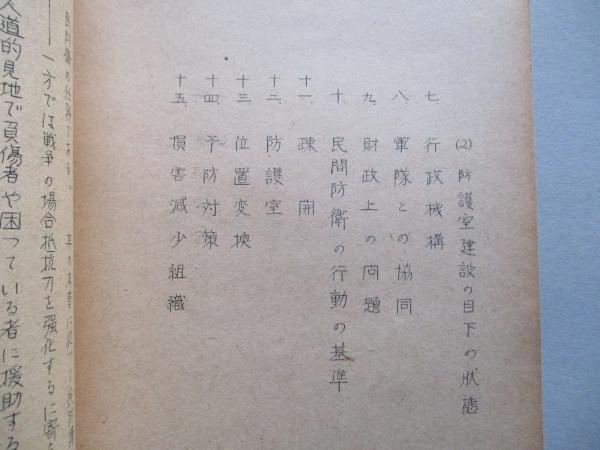 (2) 防護室建設の目下の状態
七、行政機構
八、軍隊との協同
九、財政上の問題
十、民間防衛の行動の基準
十一、疎開
十二、防護室
十三、位置変換
十四、予防対策
十五、損害減少組織
一方では戦争の場合抵抗力を強化するに寄
人道的見地で負傷者や困っている者に援助する